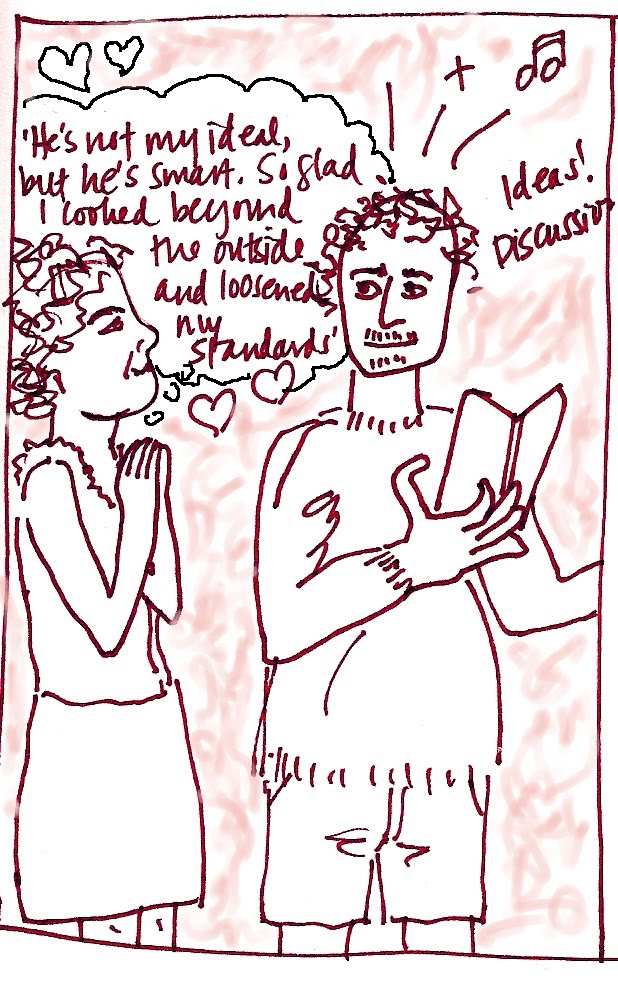 'He's not my ideal,
but he's smart. So glad
I looked beyond
the outside
and loosened
my
standards'
Ideas!
Discussion